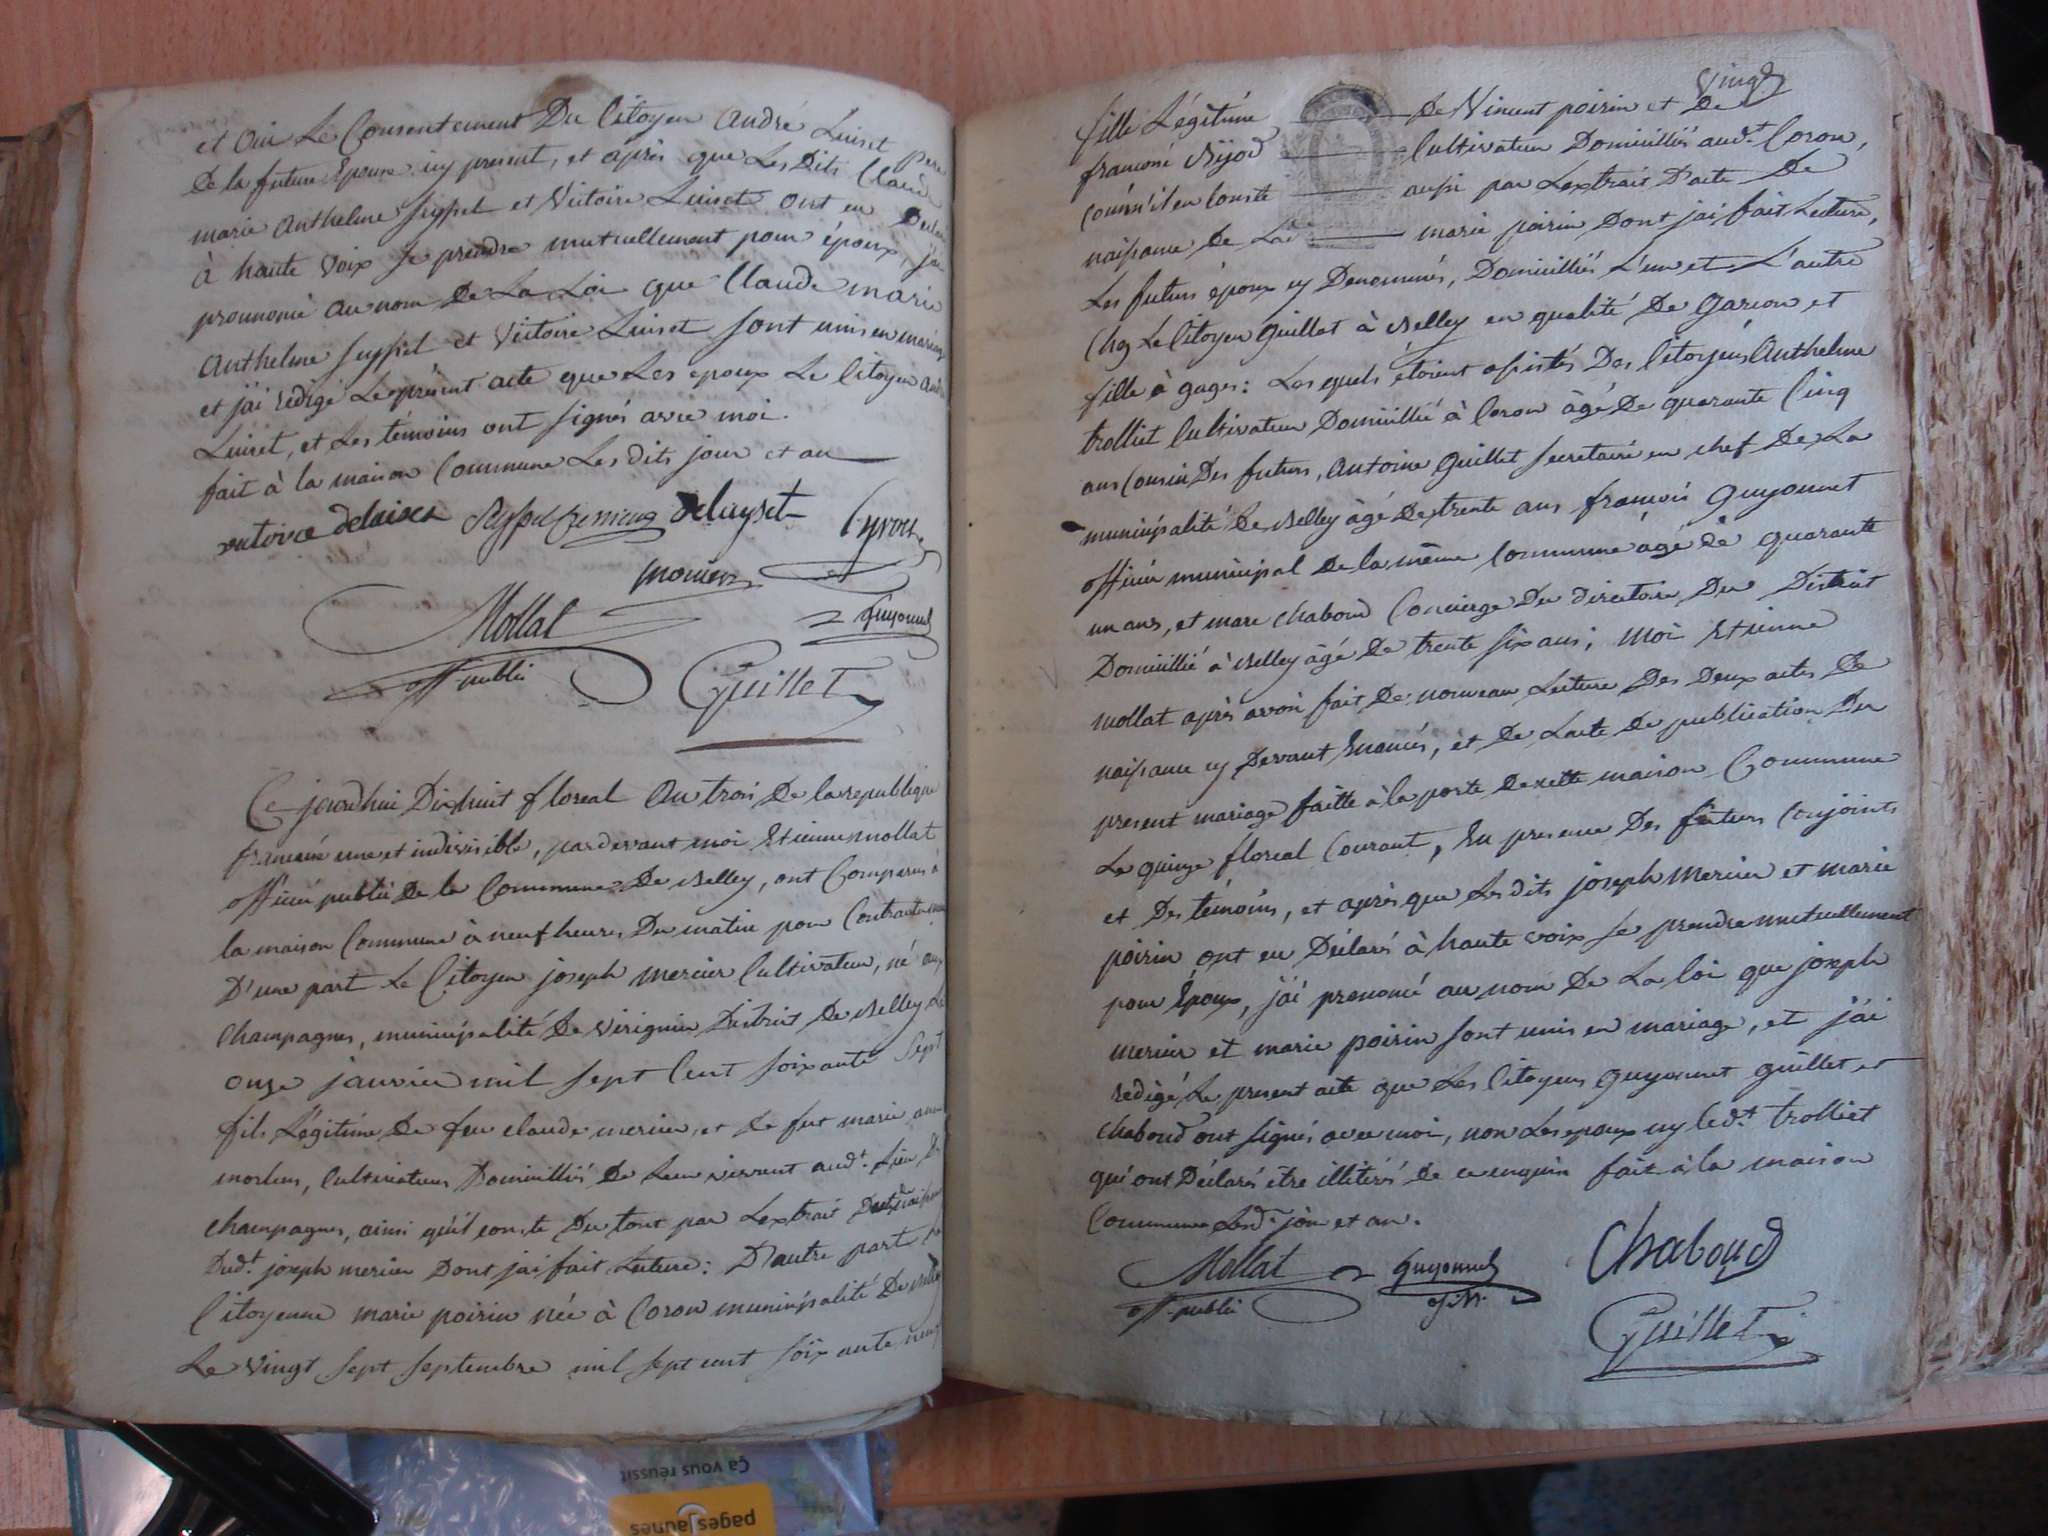 et oui Le Consentement Du Citoyen André Luiset Pere
De la future Epouse icy present, et après que Les Dits Claude
marie Anthelme Seyssel et Victoire Luiset ont eu Declaré
à haute voix Se prendre mutuellement pour époux, j'ai
prononcé au nom De La Loi que Claude marie
Anthelme Seyssel et Victoire Luiset sont unis en mariage
et j'ai rédigé Le présent acte que Les epoux Le Citoyen andré
Luiset, et Les témoins ont signés avec moi.
fait à la maison Commune Les dits jour et an
Seyssel
Mollat
Guyonnet
off. public
Guillet
Ce jourdhui Dixhuit floreal An trois De la republique
francaise une et indivisible, pardevant moi Etienne mollat
officié public De la Commune De Belley, ont Comparus à
la maison Commune à neuf heures Du matin pour Contracter
D'une part Le Citoyen joseph mercier Cultivateur, né aux
Champagnes, municipalité De virignin District De Belley Le
onze janvier mil sept Cent soixante sept
fils Légitime De feu claude mercier, et De fut marie
Cultivateurs Domicilliés De Leur vivent aud.t Lieu De
Champagnes, ainsi qu'il conste Du tout par Lextrait
Dud.t joseph mercier Dont j'ai fait Lecture: D'autre part La
Citoyenne marie poirin née à Coron municipalité De Belley
Le vingt sept septembre mil sept cent soixante neuf
vingt
fille Légitime De Vincent poirin et De
francoise Bijod Cultivateur Domicilliés aud.t Coron,
comm'il en Conste aussi par Lextrait D'acte De
naissance De Lad marie poirin Dont j'ai fait Lecture,
Les futurs époux cy Denommés, Domicilliés L'un et L'autre
Chez Le Citoyen Guillot à Belley en qualité De Garcon et
fille à gages: Lesquels étoient assistés Des Citoyens Anthelme
trolliet Cultivateur Domicillié à Coron âgé De quarante Cinq
ans Cousin Des futurs, Antoine Guillet Secretaire en chef De La
municipalité De Belley âgé De trente ans francois Guyonnet
officié municipal De la même Commune âgé de quarante
un ans, et marc chaboud Concierge Du directoire Du District
Domicillié à Belley âgé De trente six ans; Moi Etienne
mollat après avoir fait De nouveau Lecture Des Deux actes De
naissance cy Devant Enoncés, et De Lacte De publication Du
present mariage faitte à la porte De cette maison Commune
Le quinze floreal Courant, En presence Des futurs Conjoints
et Des témoins, et après que Les dits joseph Mercier et marie
poirin ont eu Déclaré à haute voix se prendre mutuellement
pour Époux, j'ai prononcé au nom De La Loi que joseph
mercier et marie poirin sont unis en mariage, et j'ai
redigé Le present acte que Les Citoyens Guyonnet Guillet et
Chaboud ont signés avec moi, non Les epoux ny Led.t trolliet
qui ont Déclarés être illitérés De ce enquis fait à la maison
Commune Lesd. jour et an.
Mollat
Guyonnet
Chaboud
off. public
of. M.
Guillet
Ça vous réussit
pagesJaunes